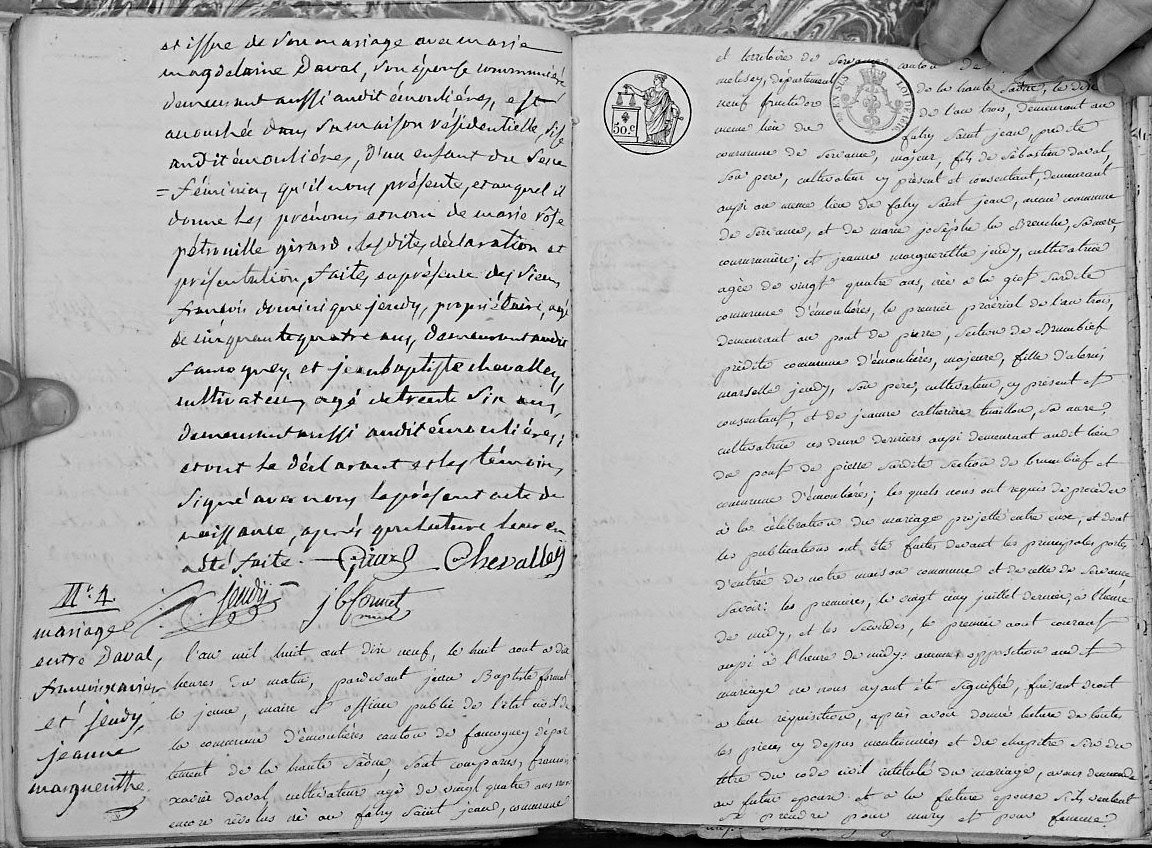 et issue de son mariage avec marie
magdelaine Daval, son épouse commmière
demeurant aussi audit émoulières, est
accouchée dans sa maison résidentielle sise
audit émoulières, d'un enfant du sexe
= féminin, qu'il nous présente, et auquel il
donne les prénoms et nom de marie rose
pétronille girard. Lesdites déclaration et
présentation, faites en présence des sieurs
françois dominique jeudy, propriétaire, agé
de cinquante quatre ans, demeurant audit
faucogney, et jean baptiste chevalley,
cultivateur, agé de trente six ans,
demeurant aussi audit émoulières;
et ont le déclarant et les témoins,
signé avec nous le présent acte de
naissance, après que lecture leur en
a été faite. Girard Chevalley
jeudy j b formet
maire
N.º 4.
mariage
entre Daval,
françois xavier
et jeudy,
jeanne
marguerithe,
l'an mil huit cent dix neuf, le huit aout à dix
heures du matin, pardevant jean Baptiste formet
le jeune, maire et officier public de l'état civil de
la commune d'émoulières canton de faucogney dépar
tement de la haute Saône, sont comparus, françois
xavier daval, cultivateur agé de vingt quatre ans non
encore révolus né au fahy Saint jean, commune
50.c
et territoire de Servance canton de
melisey, département de la haute Saône, le dix
neuf fructidor de l'an trois, demeurant au
meme lieu du fahy Saint jean, predite
commune de Servance, majeur, fils de Sébastien daval,
Son pere, cultivateur cy présent et consentant, demeurant
aussi au meme lieu du fahy Saint jean, meme commune
de Servance, et de marie josèphe la Breuche, Sa mere,
commmière; et jeanne marguerithe jeudy, cultivatrice
agée de vingt quatre ans, née à la gief Surdite
commune d'émoulières, le premier prairial de l'an trois,
demeurant au pont de pierre, Section de Brumbief
prédite commune d'émoulières, majeure, fille d'alexis
marselle jeudy, Son père, cultivateur, cy présent et
consentant, et de jeanne catherine tuaillon, Sa mere,
cultivatrice ces deux derniers aussi demeurant audit lieu
de pont de pierre Surdite Section de brumbief et
commune d'émoulières; les quels nous ont requis de procéder
à la célébration du mariage projetté entre eux, et dont
les publications ont été faites devant les principales portes
d'entrée de notre maison commune et de celle de Servance
Savoir: les premières, le vingt cinq juillet dernier, à l'heure
de midy, et les Secondes, le premier aout courant
aussi à l'heure de midy: aucune opposition audit
mariage ne nous ayant été Signifiée, faisant droit
à leur réquisition, après avoir donné lecture de toutes
les pieces cy dessus mentionnées et du chapitre Six du
titre du code civil intitulé du mariage, avons demandé
au futur epoux et à la future epouse S'ils veulent
Se prendre pour mary et pour femme?